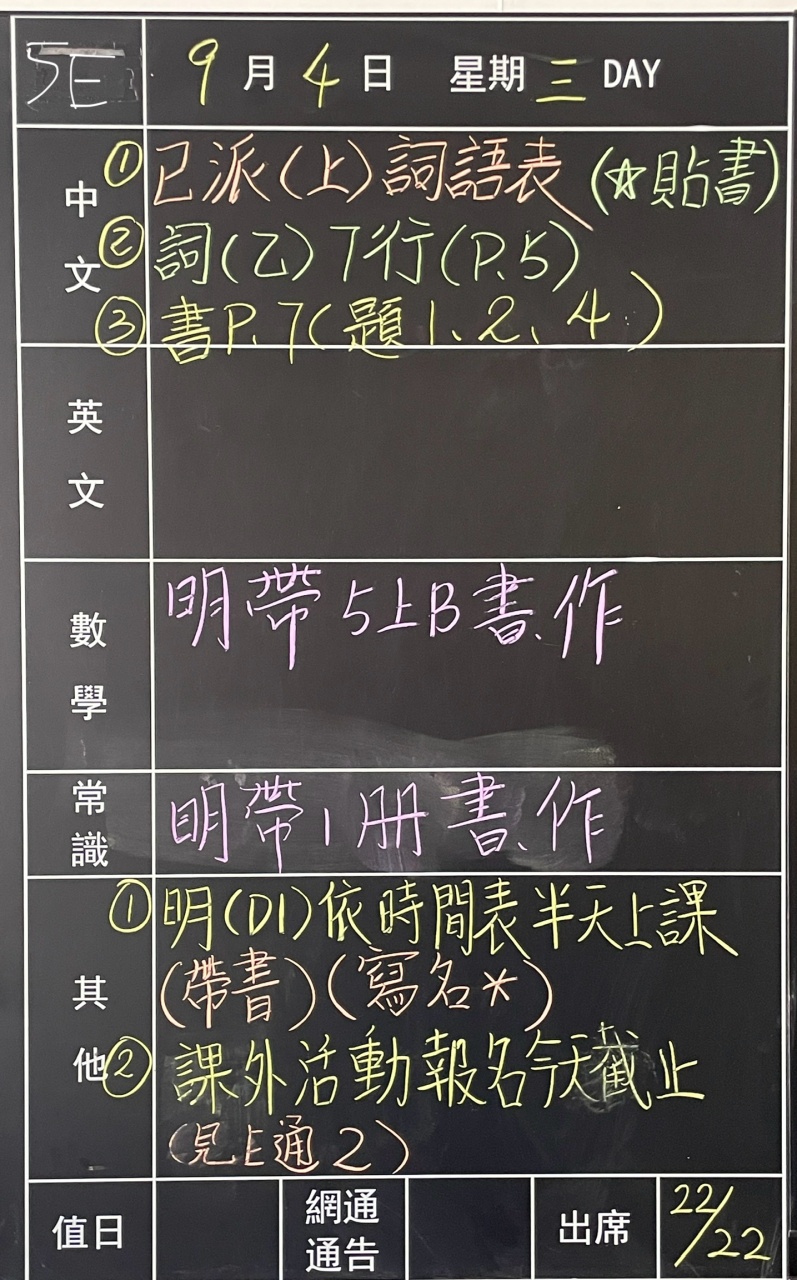 5E 9月4日 星期三 DAY
中文 ①已派(上)詞語表 (☆貼書)
②詞(乙)7行(P.5)
③書P.7(題1、2、4)
英文
數學 明帶5上B書、作
常識 明帶1册書、作
其他 ①明(D1)依時間表半天上課
(帶書)(寫名*)
②課外活動報名今天截止
(見上通2)
值日 網通通告 出席 22/22